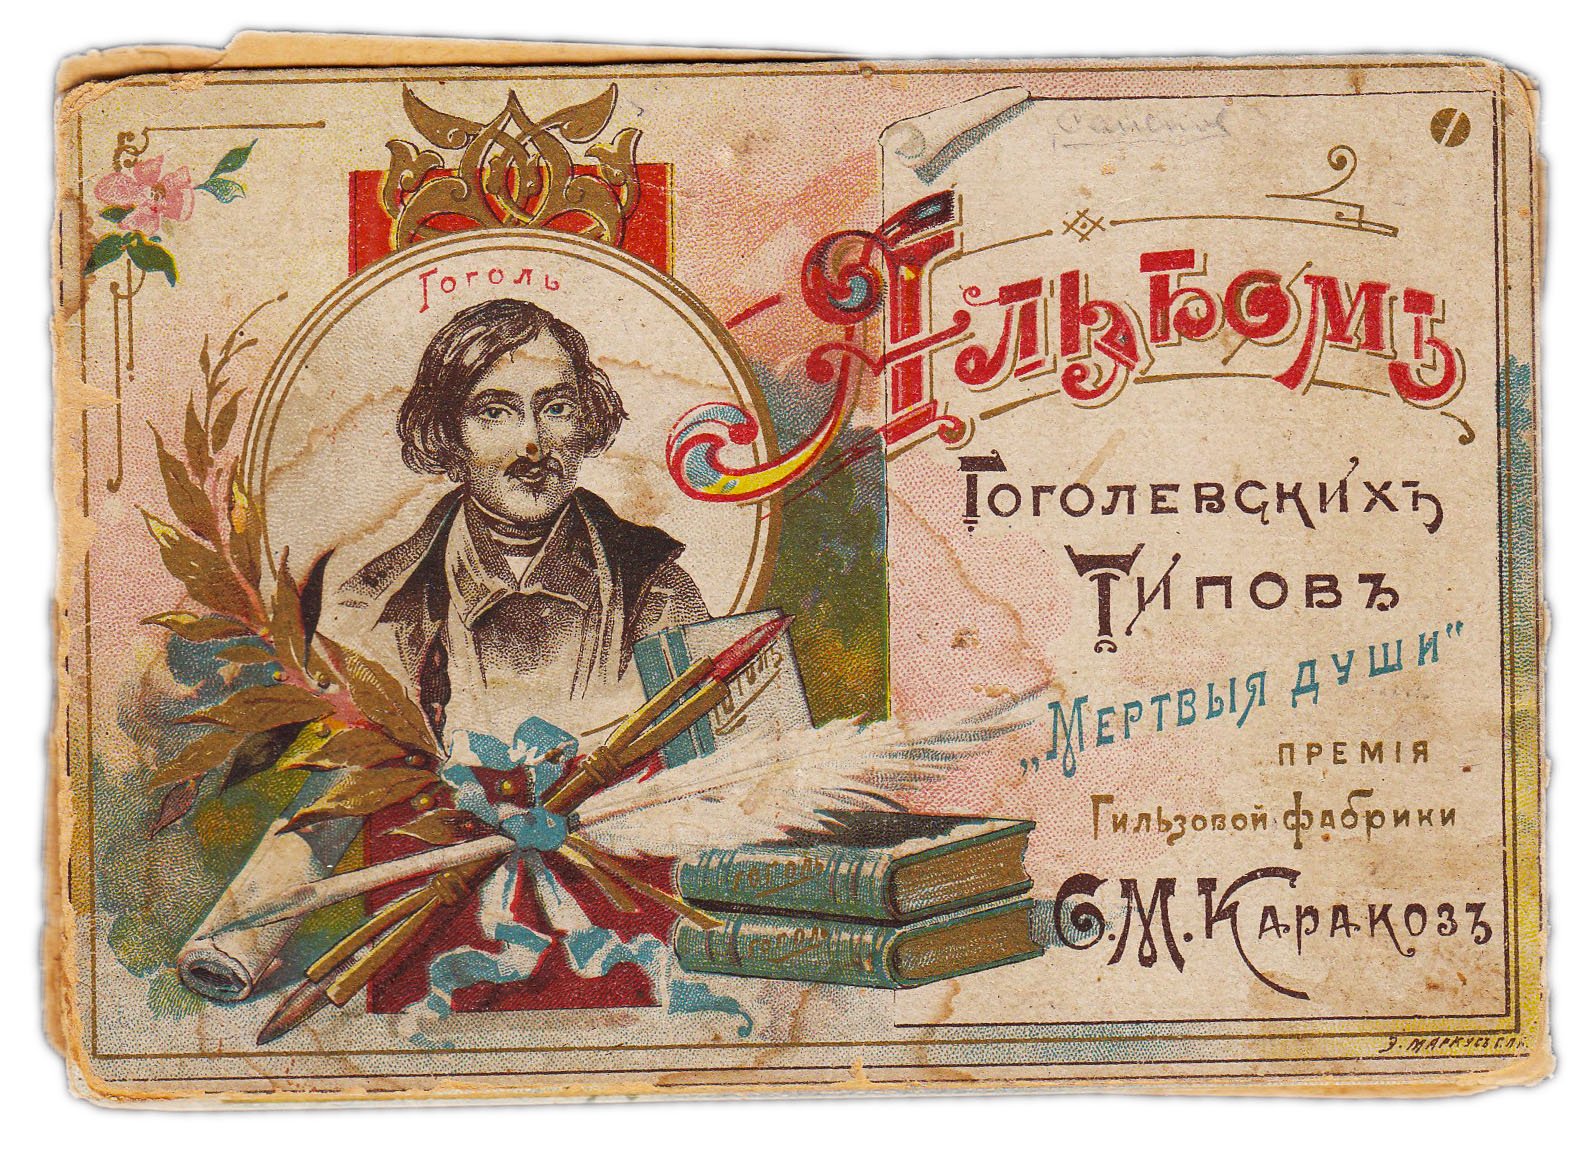 Гоголь
Альбомъ
Гоголевскихъ
Типовъ
„Мертвыя души“
премія
Гильзовой фабрики
С.М. Каракозъ
Гоголь
Гоголь
Гоголь
Э. Маркусъ